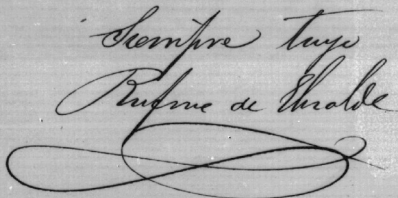 Siempre tuyo
Rufino de Elizalde